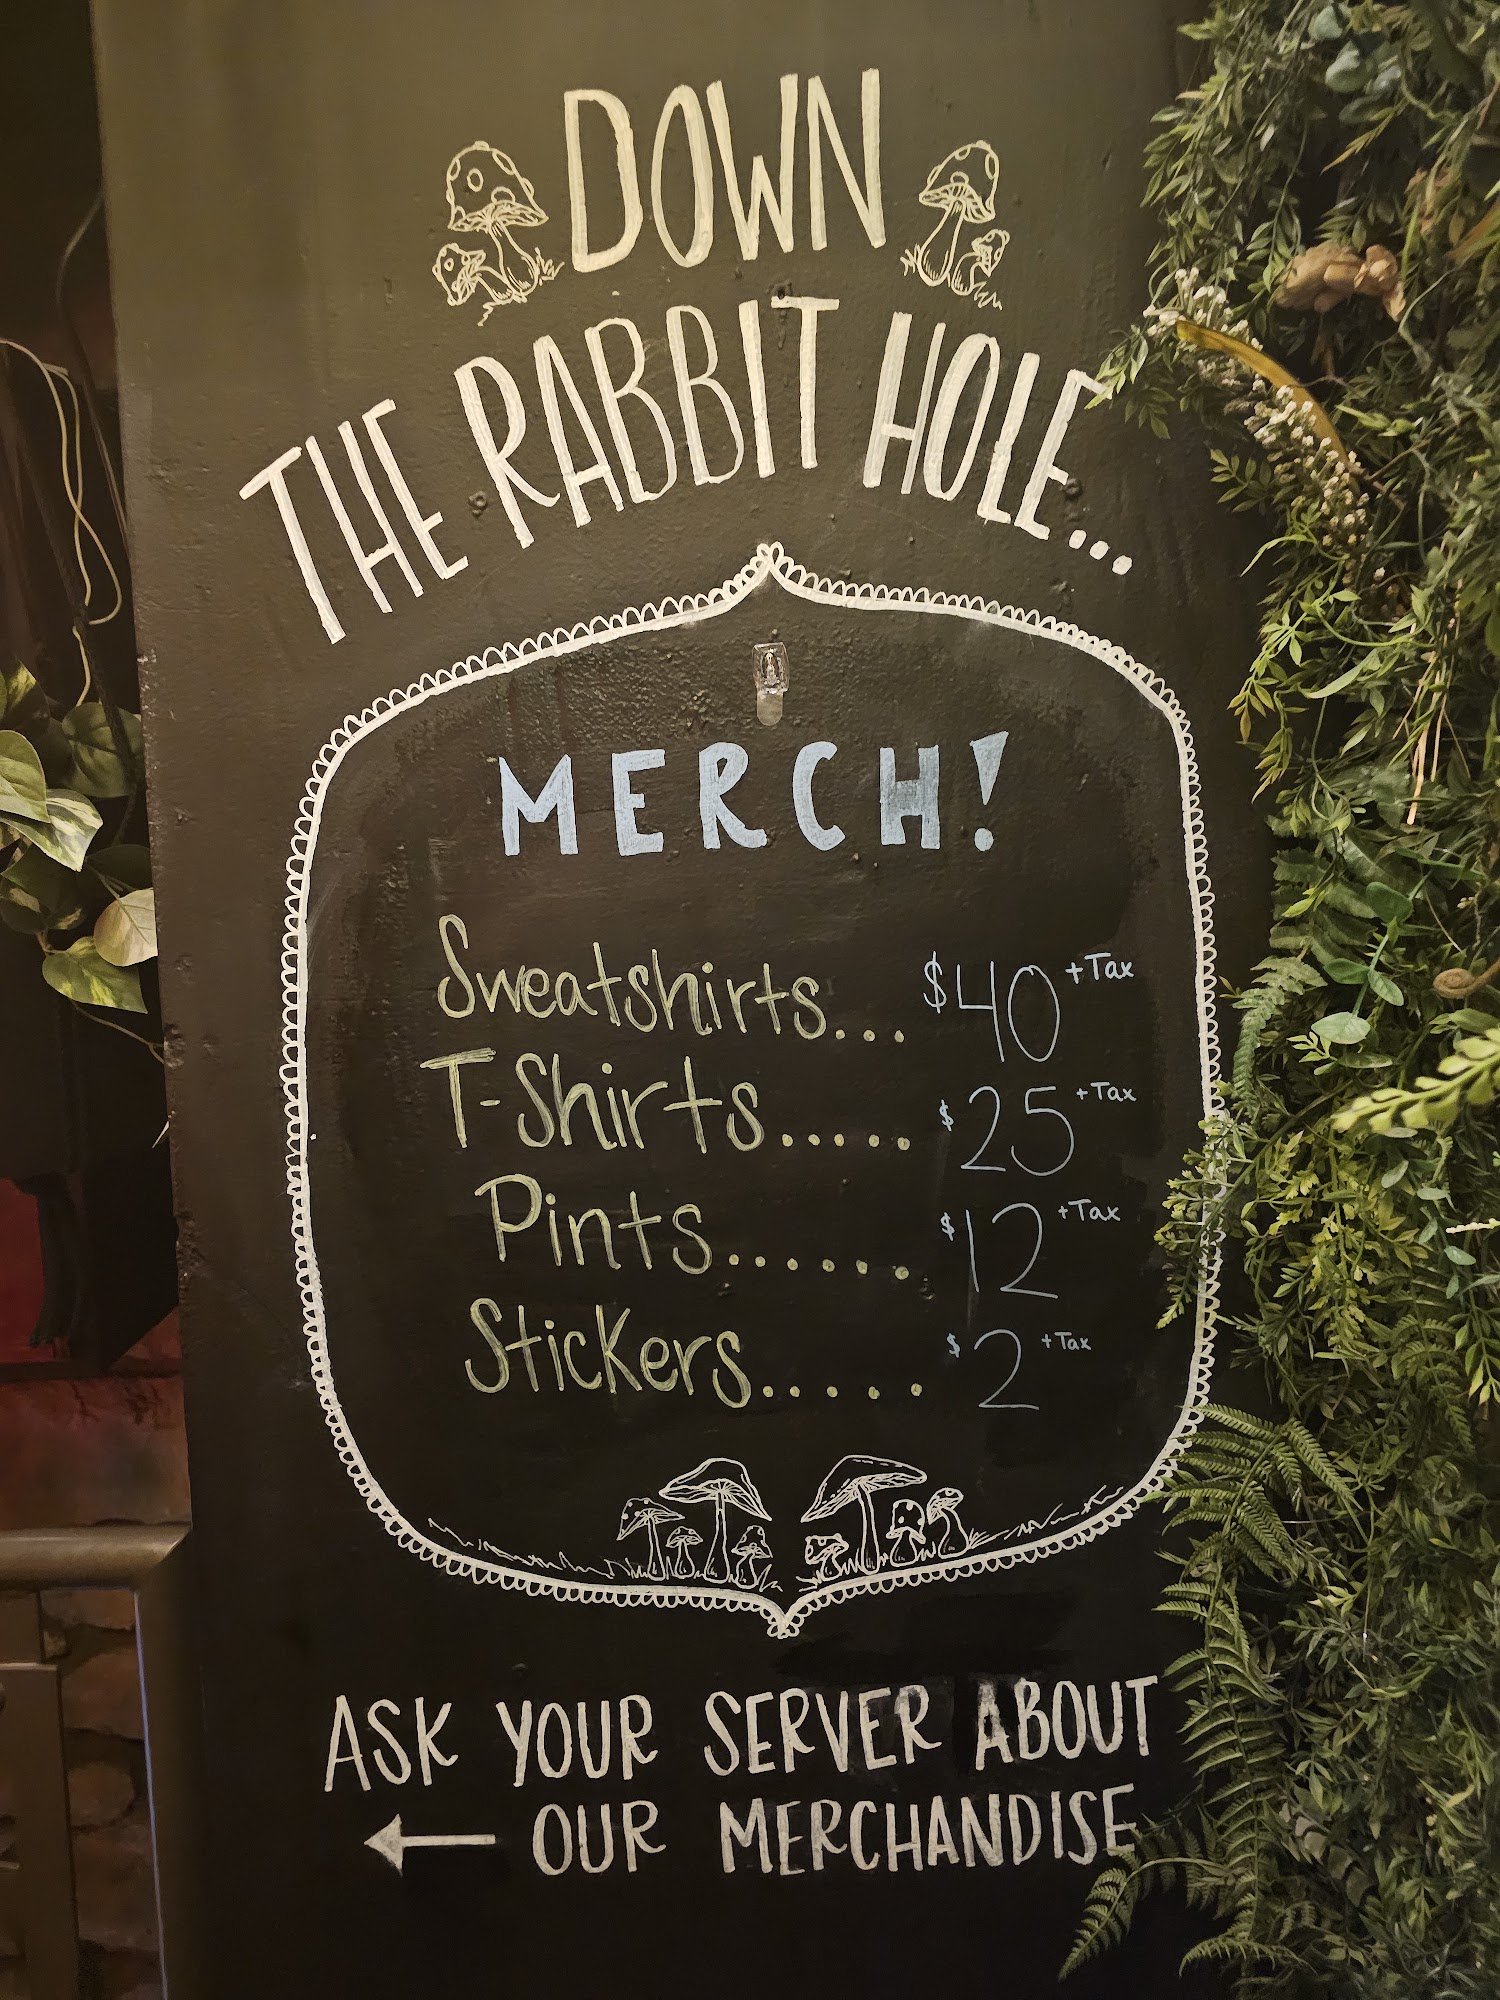 DOWN
THE RABBIT HOLE...
MERCH!
Sweatshirts... $40 +Tax
T-Shirts..... $25 +Tax
Pints....... $12 +Tax
Stickers...... $2 +Tax
ASK YOUR SERVER ABOUT
← OUR MERCHANDISE